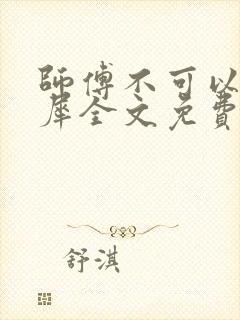 師傅不可以
犀全文免費
舒淇